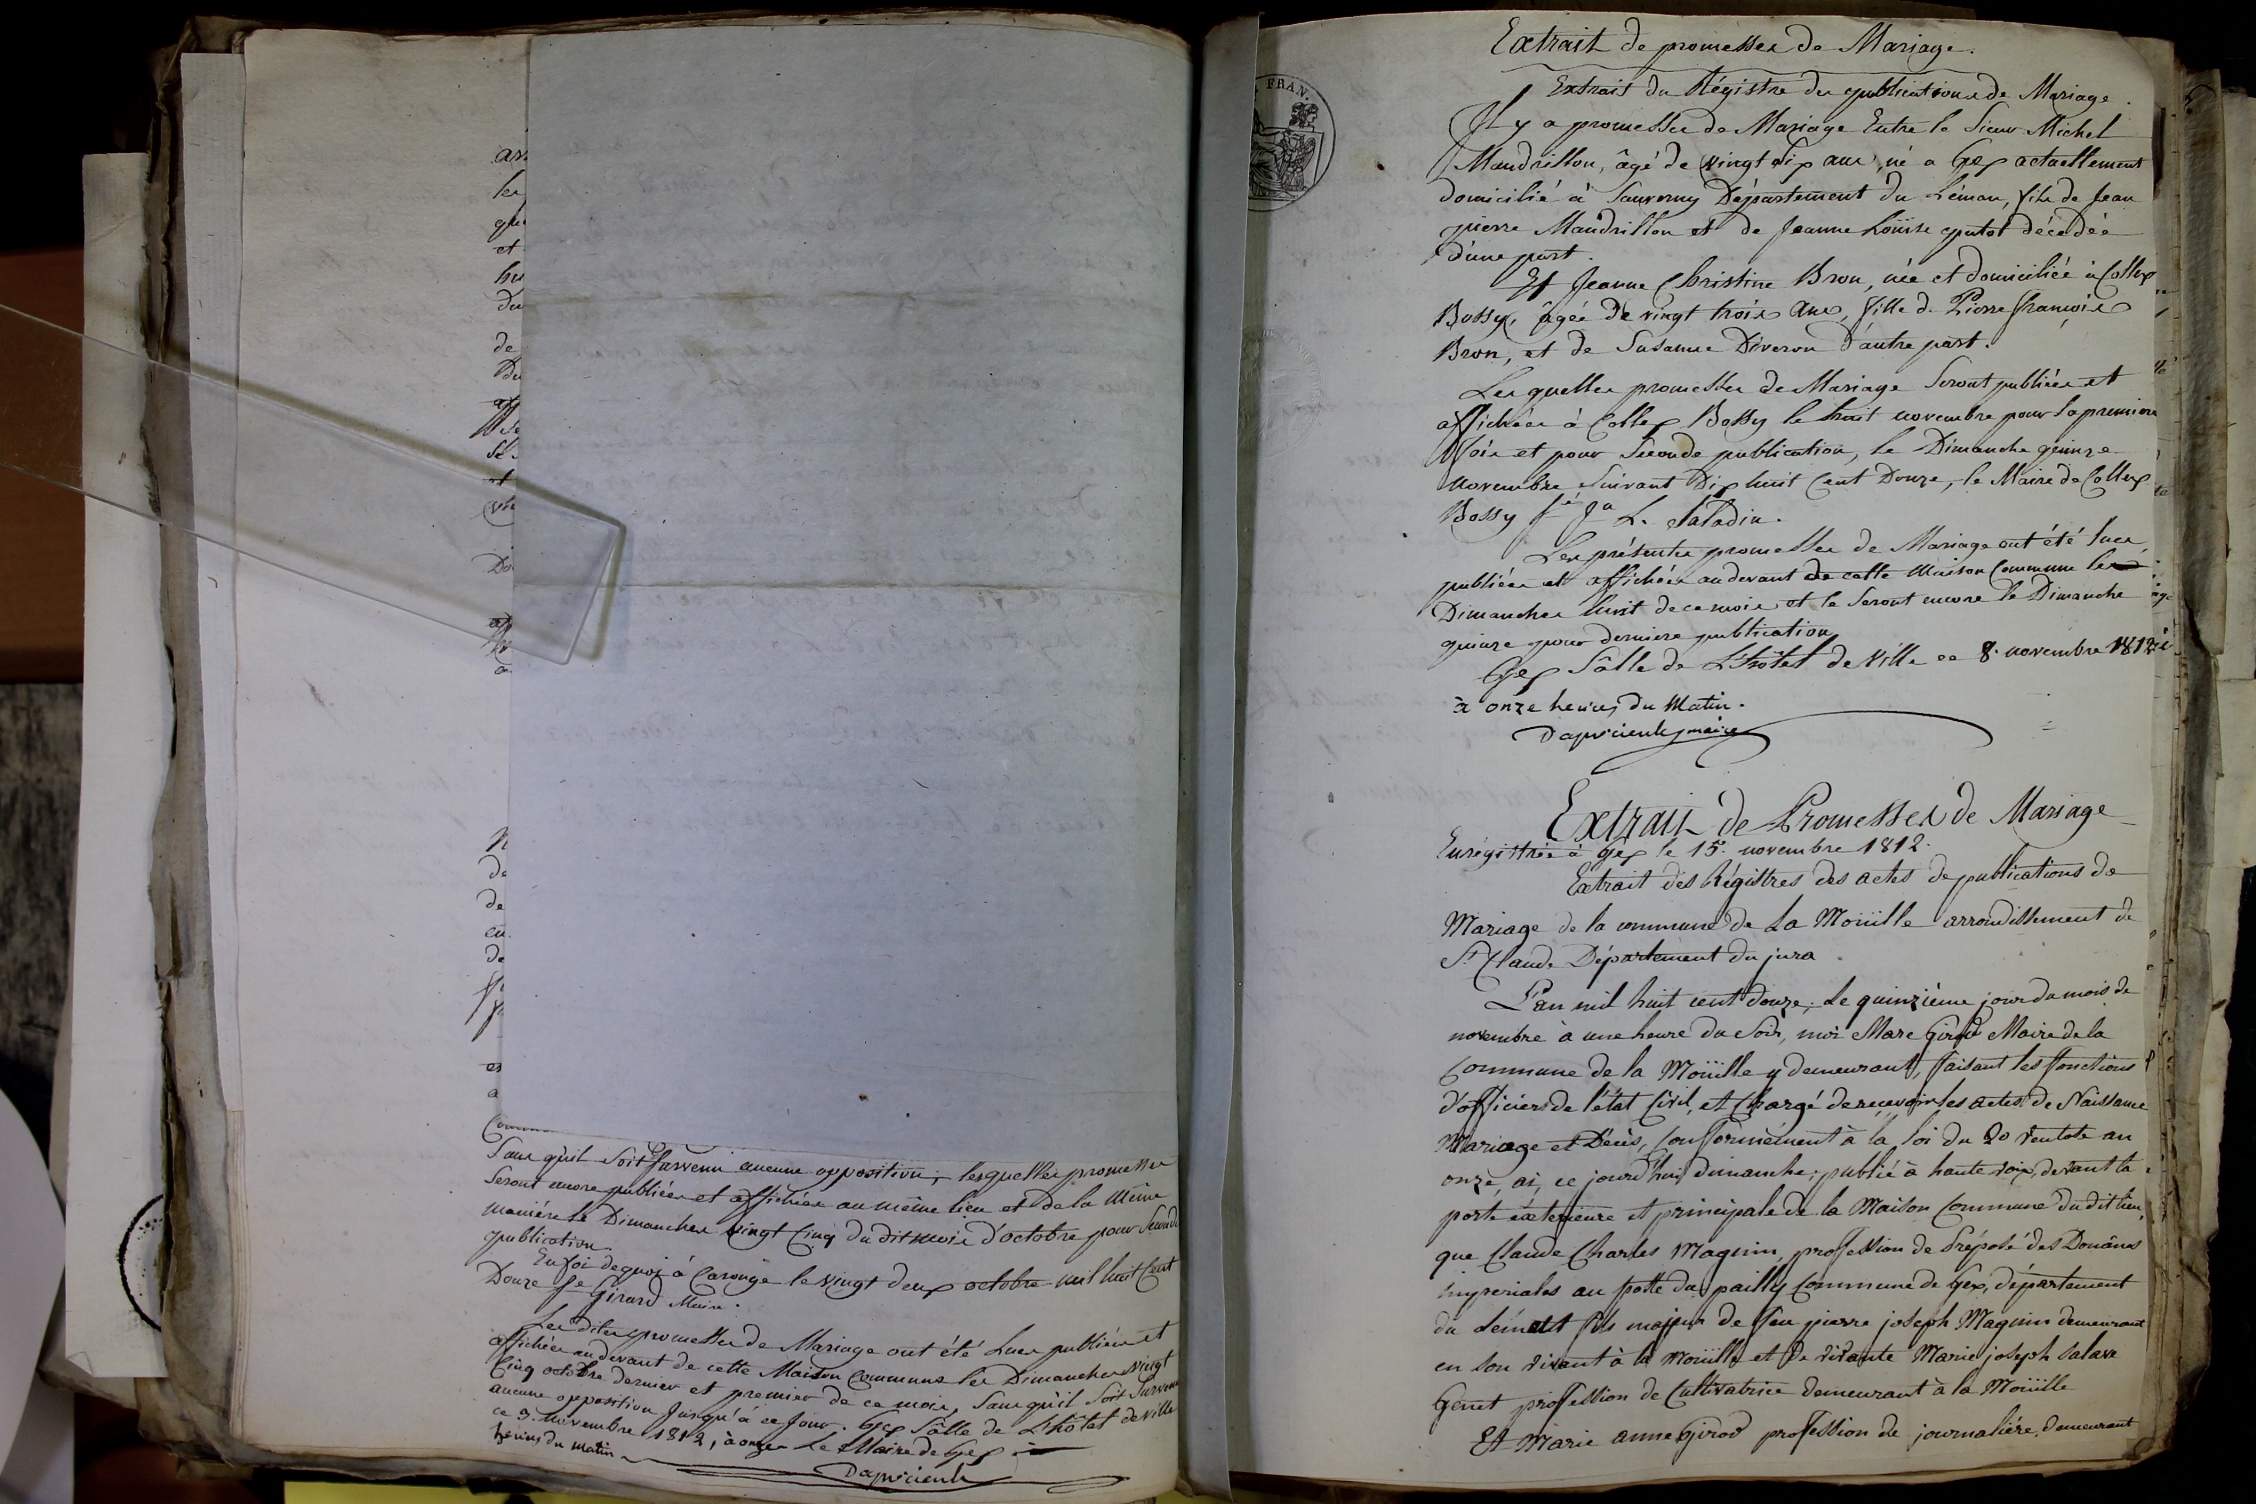 Sans qu'il soit survenu aucune opposition; lesquelles promesses
Seront encore publiées et affichées au même lieu et de la même
manière le Dimanche vingt Cinq du dit mois d'octobre pour Seconde
publication.
En foi de quoi à Carouge le vingt deux octobre mil huit Cent
Douze Sé Girard Maire.
Les dites promesses de Mariage ont été Lues publiées et
affichées au devant de cette Maison Commune les Dimanches vingt
Cinq octobre dernier et premier de ce mois, Sans qu'il Soit Survenu
aucune opposition Jusqu'à ce Jour. Gex Sâlle de L'hôtel de Ville
ce 3. novembre 1812, à onze Le Maire de Gex
heures du matin
FRAN.
Extrait de promesses de Mariage.
Extrait du Régistre des publications de Mariage.
Il y a promesses de Mariage Entre le Sieur Michel
Maudrillon, âgé de vingt six ans, né a Gex actuellement
domicilié à Sauverny Département du Léman, fils de Jean
pierre Maudrillon et de Jeanne Louïse putot décédée
d'une part.
Et Jeanne Christine Bron, née et domiciliée à Collex
Bossy, âgée de vingt trois ans, fille de Pierre françois
Bron, et de Susanne Diveron d'autre part.
Les quelles promesses de Mariage Seront publiées et
affichées à Collex Bossy le huit novembre pour la premiere
fois et pour Seconde publication, le Dimanche quinze
novembre Suivant Dix huit Cent Douze, le Maire de Collex
Bossy Sé Ja L. Saladin.
Les présentes promesses de Mariage ont été lues,
publiées et affichées au devant de cette Maison Commune les
Dimanches huit de ce mois et le Seront encore le Dimanche
quinze pour derniere publication
Gex Sâlle de L'hôtel de Ville ce 8. novembre 1812
à onze heures du Matin.
maire
Extrait de Promesses de Mariage
Enrégistrée à Gex le 15. novembre 1812.
Extrait des Régistres des actes de publications de
Mariage de la commune de La Mouïlle arrondissement de
St Claude Département du jura.
L'an mil huit cent douze, le quinzième jour du mois de
novembre à une heure du soir, moi Marc Girod Maire de la
Commune de la Mouïlle y demeurant, faisant les fonctions
d'officiers de l'état Civil, et Chargé de recevoir les actes de Naissance
Mariage et Décès, Conformément à la loi du 20 ventose an
onze, ai, ce jourd'hui dimanche, publié à haute voix, devant la
porte éxterieure et principale de la Maison Commune du dit lieu,
que Claude Charles Magnin, profession de Préposé des Douânes
imperiales au poste du pailly Commune de Gex, département
du Léman fils majeur de feu pierre joseph Magnin demeurant
en son vivant à la Mouïlle et de vivante Marie joseph Salave
Genet profession de Cultivatrice demeurant à la Mouïlle
Et Marie anne Girod profession de journalière, demeurant